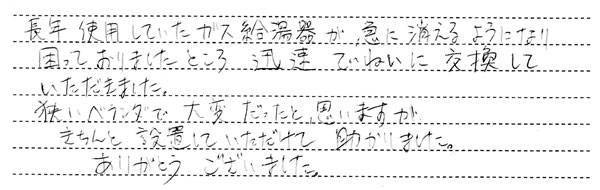 長年使用していたガス給湯器が、急に消えるようになり
困っておりましたところ 迅速 ていねいに 交換して
いただきました。
狭いベランダで 大変だったと、思いますが
きちんと 設置していただけて 助かりました。
ありがとう ございました。